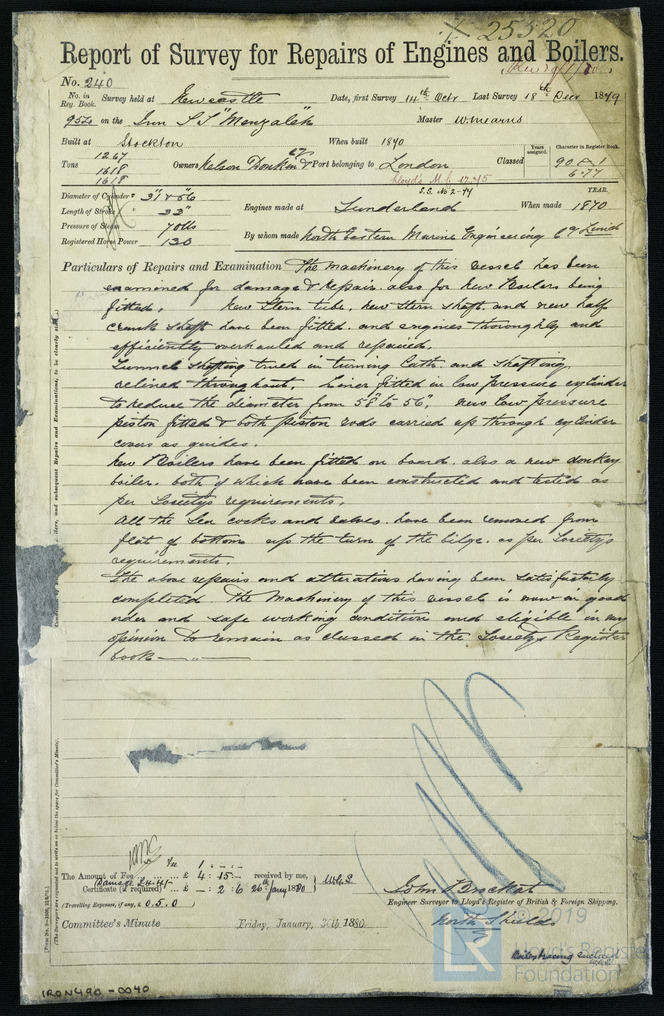 25520
Report of Survey for Repairs of Engines and Boilers.
No. 240
No. in Reg. Book. Survey held at Newcastle Date, first Survey 14th Octr Last Survey 18th Decr 1879
952 on the Iron S.S "Menzaleh" Master W. Mearns
Built at Stockton When built 1870
Tons 1267 1618 1618 Owners Nelson Donkin & Co Port belonging to London Classed Years assigned. Character in Register Book. 90 A1 6.77
Lloyd's M.C. 12.75
S.S. No 2-74
Diameter of Cylinder 31 & 56
Length of Stroke 33"
Pressure of Steam 70 lbs
Registered Horse Power 130
Engines made at Sunderland When made YEAR. 1870
By whom made North Eastern Marine Engineering Co Limd
Particulars of Repairs and Examination The machinery of this vessel has been
examined for damage & repair. also for New Boilers being
fitted. New Stern tube, new Stern shaft, and new half
crank shaft have been fitted, and engines thoroughly and
efficiently overhauled and repaired.
Tunnel shafting trued in turning lath, and shafting
relined throughout. Liner fitted in low pressure cylinder
to reduce the diameter from 58" to 56", new low pressure
piston fitted & both piston rods carried up through cylinder
covers as guides.
New Boilers have been fitted on board, also a new donkey
boiler. both of which have been constructed and tested as
per Society's requirements.
All the Sea cocks and valves. have been removed from
flat of bottom up the turn of the bilge. as per Society's
requirements.
The above repairs and alterations having been satisfactorily
completed The Machinery of this vessel is now in good
order and safe working condition and eligible in my
opinion to remain as classed in the Society's Register
book
Fee 1 : - : -
The Amount of Fee £ 4 : 15 : - received by me,
Damage £4.4s
Certificate (if required) £ - : 2 : 6 26th Jany 1880
(Travelling Expenses, if any, £ 0.5.0)
John Brockat
Engineer Surveyor to Lloyd's Register of British & Foreign Shipping.
North Shields
Committee's Minute Friday, January, 1880
Boiler tracing enclosed
© 2019
Lloyd's Register
Foundation
LR
IRON490-0040